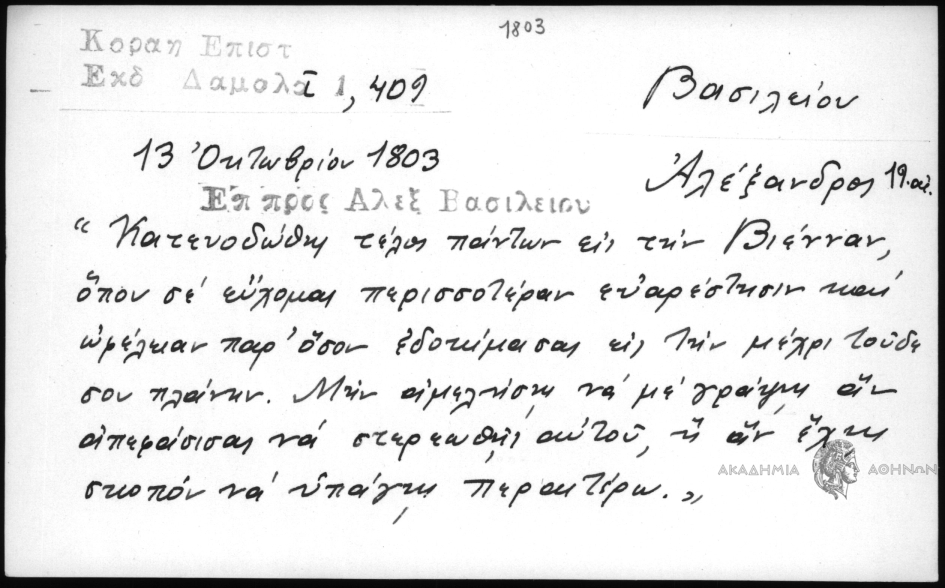 1803
Κοραη Επιστ
Εκδ Δαμαλα Ι 1, 409
Βασιλείου
13 Ὀκτωβρίου 1803
Ἀλέξανδρος 19.αι.
Επ προς Αλεξ Βασιλειου
“Κατευοδώθης τέλος πάντων εἰς τὴν Βιένναν,
ὅπου σέ εὔχομαι περισσοτέραν εὐαρέστησιν καί
ὠφέλειαν παρ' ὅσον ἐδοκίμασας εἰς τὴν μέχρι τοῦδε
σου πλάνην. Μήν ἀμελήσης νά μέ γράψης ἄν
ἀπεφάσισας νά στερεωθῇς αὐτοῦ, ἤ ἄν ἔχης
σκοπόν νά ὑπάγῃς περαιτέρω.„
ΑΚΑΔΗΜΙΑ ΑΘΗΝΩΝ